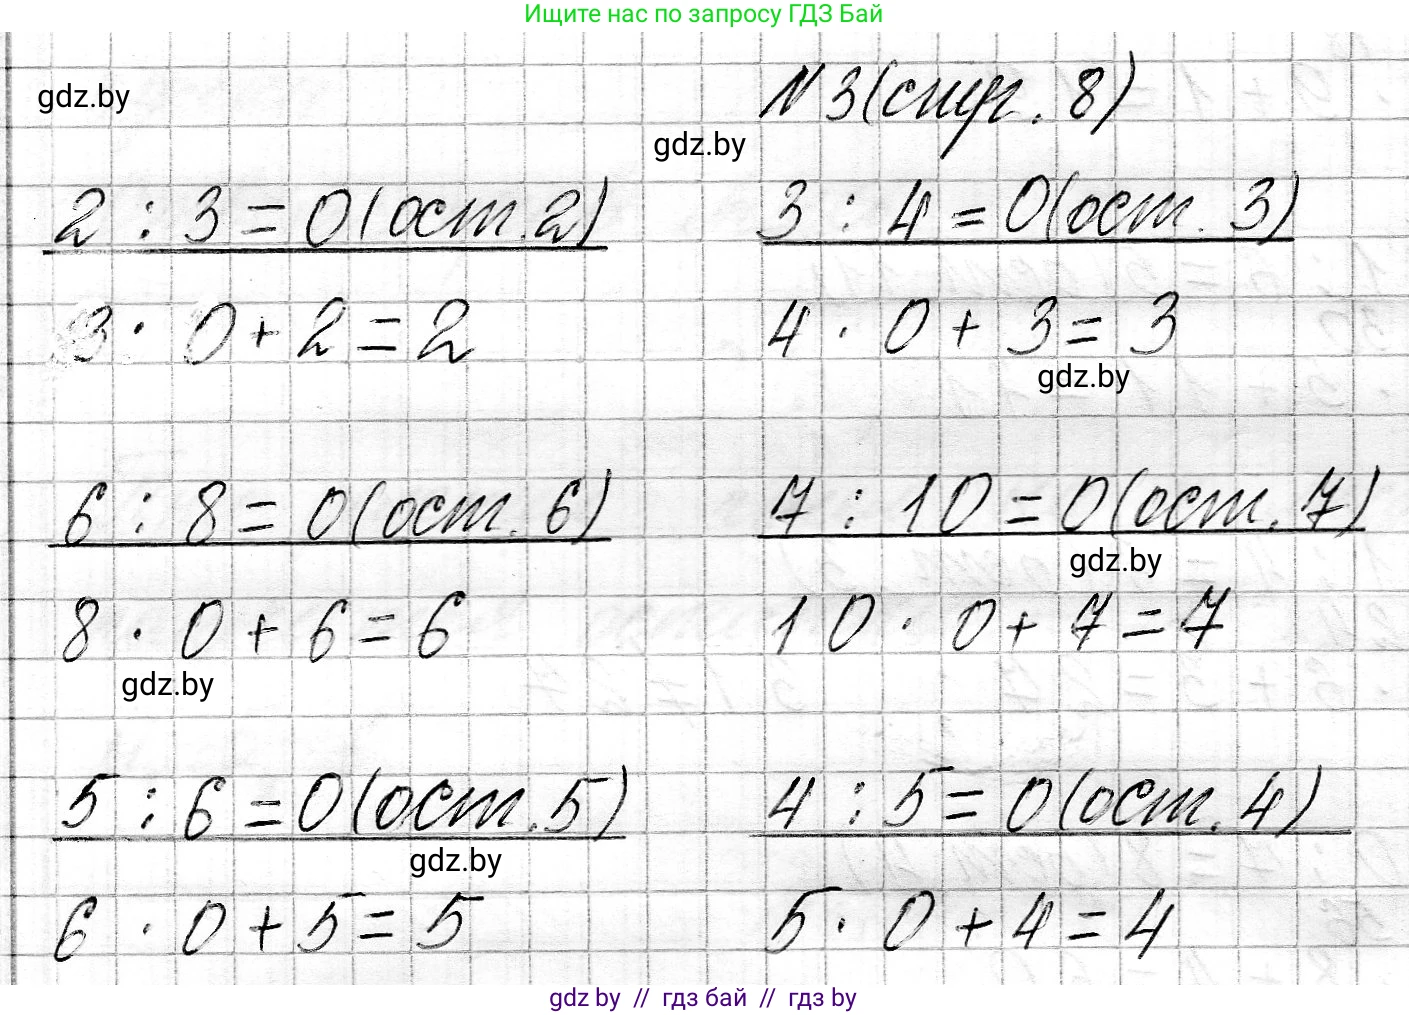 Ищите нас по запросу ГДЗ Бай
gdz.by
N 3 (стр. 8)
gdz.by
2 : 3 = 0 (ост. 2)
3 : 4 = 0 (ост. 3)
3 · 0 + 2 = 2
4 · 0 + 3 = 3
gdz.by
6 : 8 = 0 (ост. 6)
7 : 10 = 0 (ост. 7)
gdz.by
8 · 0 + 6 = 6
10 · 0 + 7 = 7
gdz.by
5 : 6 = 0 (ост. 5)
4 : 5 = 0 (ост. 4)
gdz.by
6 · 0 + 5 = 5
5 · 0 + 4 = 4
gdz by // гдз бай // гдз by